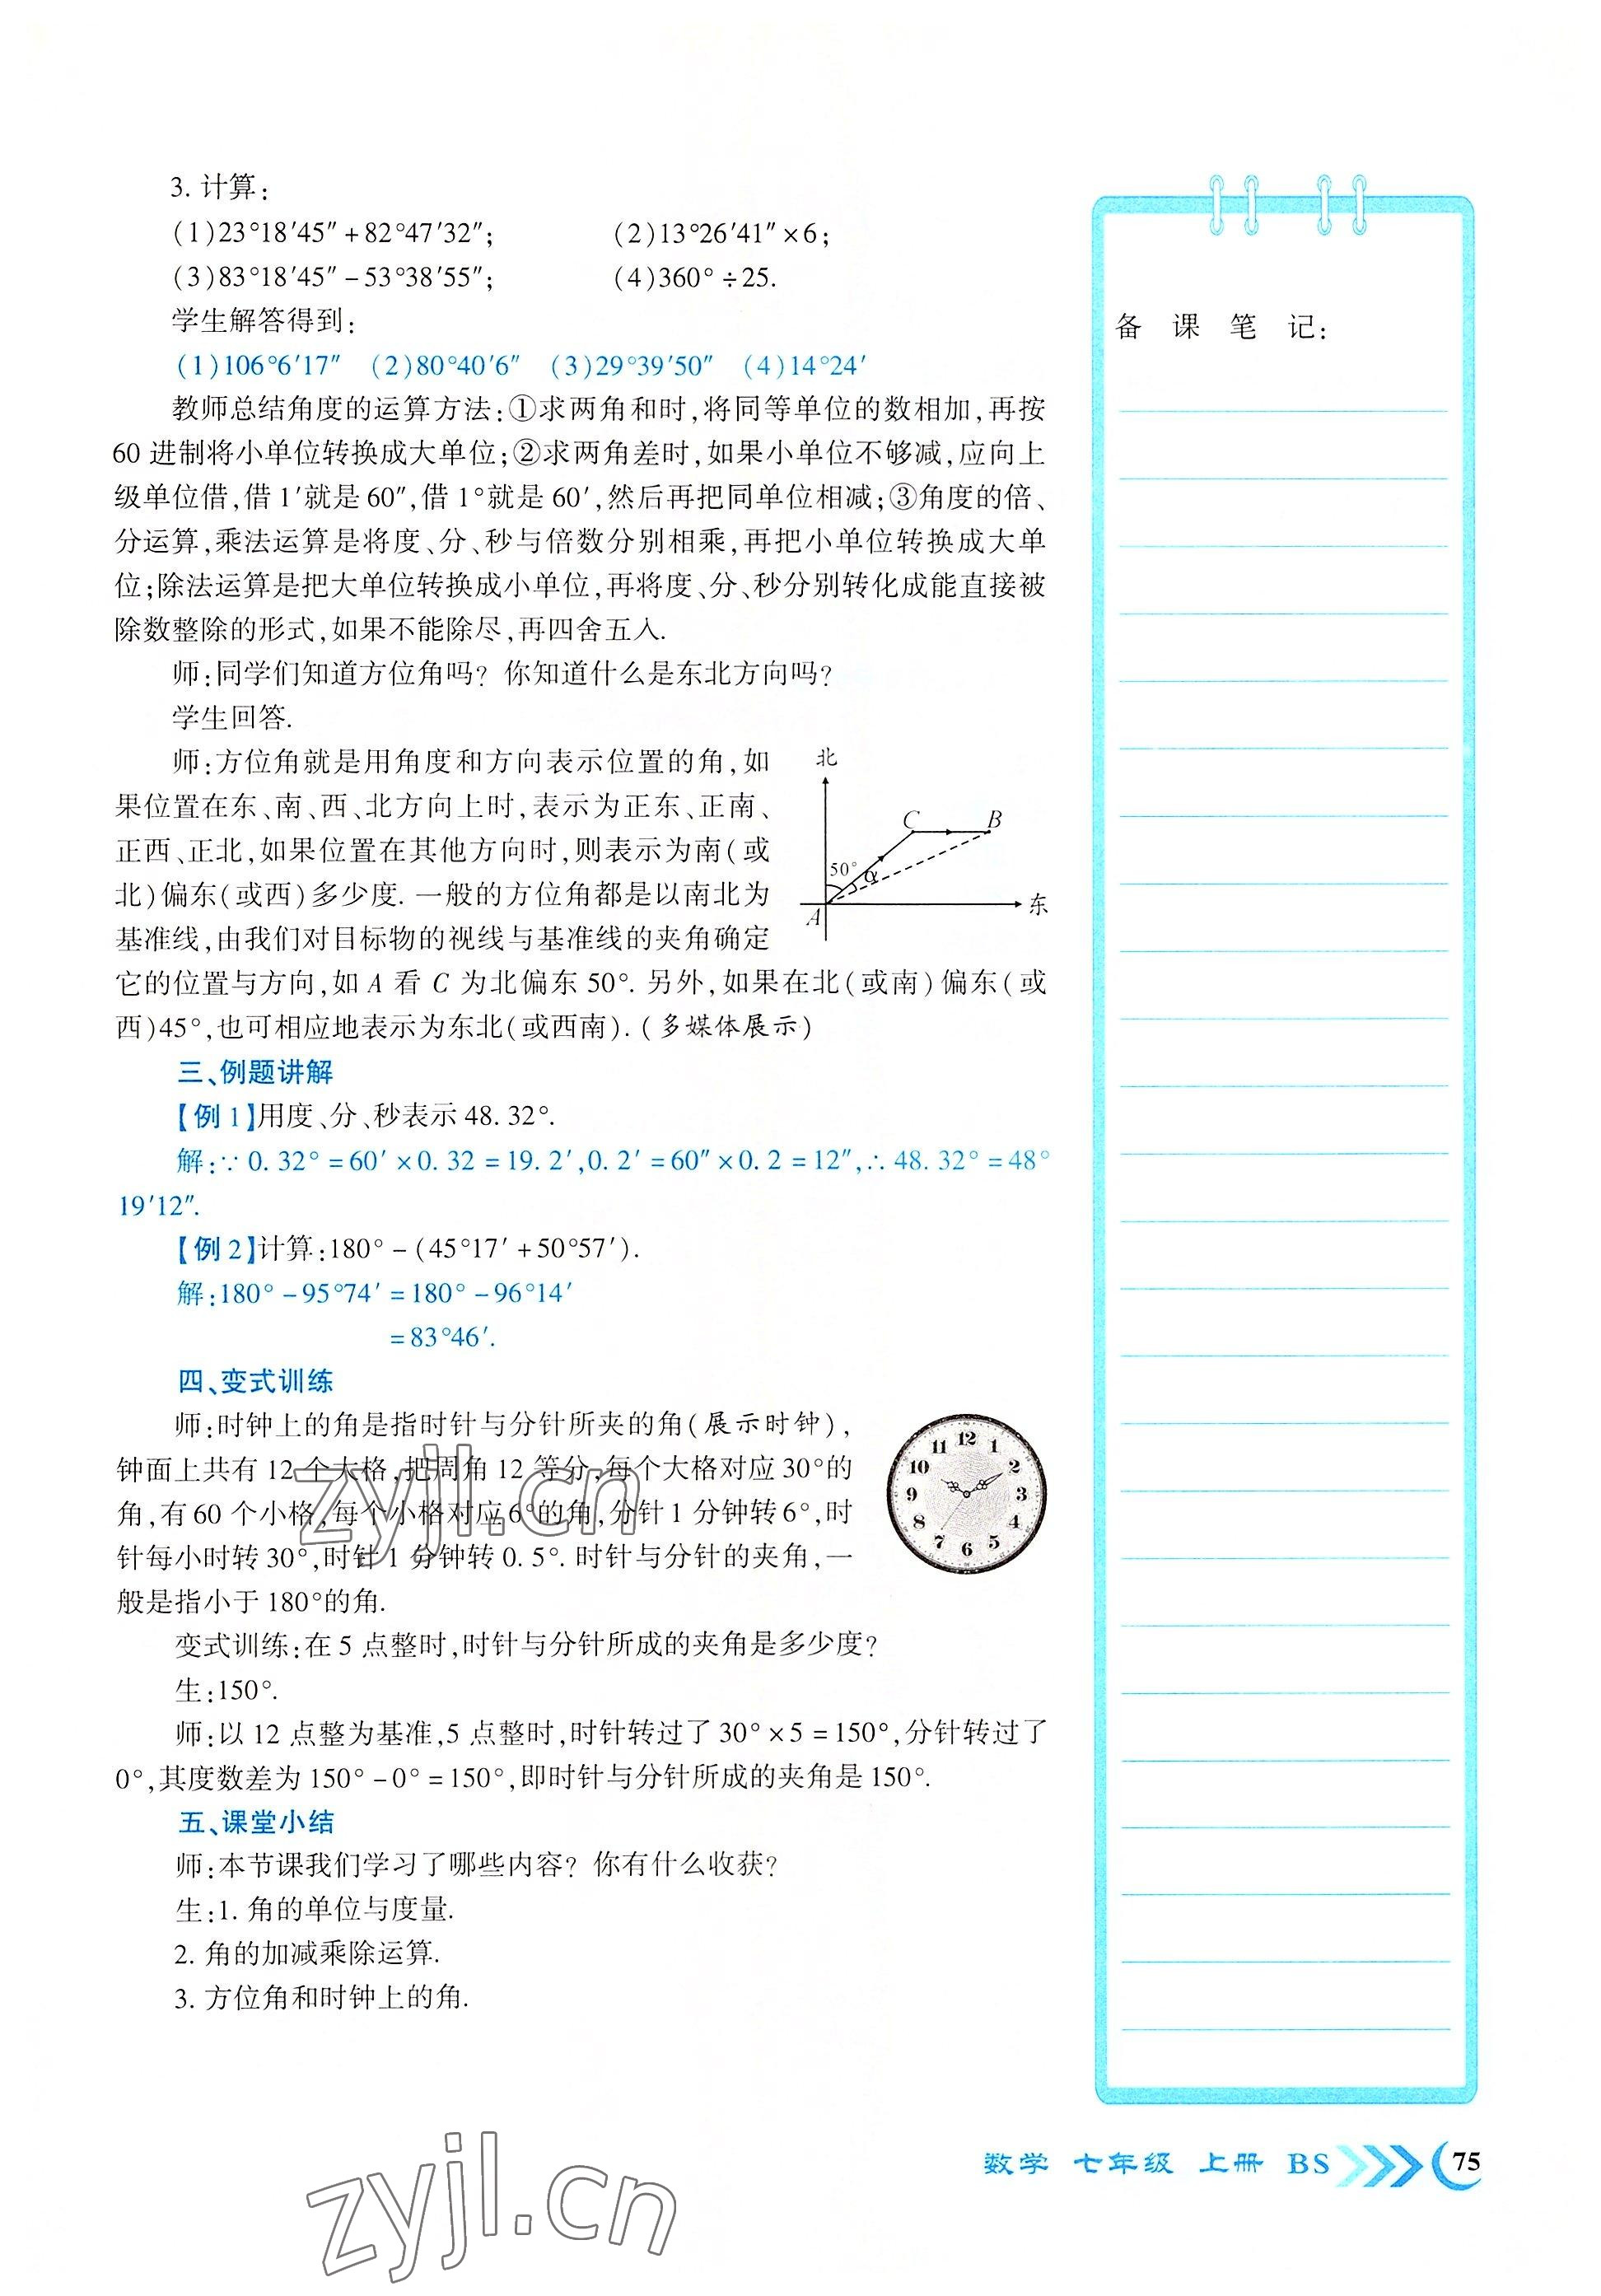 3. 计算:
(1)23°18′45″+82°47′32″;  (2)13°26′41″×6;
(3)83°18′45″-53°38′55″;  (4)360°÷25.
学生解答得到:
(1)106°6′17″  (2)80°40′6″  (3)29°39′50″  (4)14°24′
教师总结角度的运算方法:①求两角和时,将同等单位的数相加,再按
60进制将小单位转换成大单位;②求两角差时,如果小单位不够减,应向上
级单位借,借1′就是60″,借1°就是60′,然后再把同单位相减;③角度的倍、
分运算,乘法运算是将度、分、秒与倍数分别相乘,再把小单位转换成大单
位;除法运算是把大单位转换成小单位,再将度、分、秒分别转化成能直接被
除数整除的形式,如果不能除尽,再四舍五入.
师:同学们知道方位角吗? 你知道什么是东北方向吗?
学生回答.
师:方位角就是用角度和方向表示位置的角,如
果位置在东、南、西、北方向上时,表示为正东、正南、
正西、正北,如果位置在其他方向时,则表示为南(或
北)偏东(或西)多少度. 一般的方位角都是以南北为
基准线,由我们对目标物的视线与基准线的夹角确定
它的位置与方向,如A看C为北偏东50°. 另外,如果在北(或南)偏东(或
西)45°,也可相应地表示为东北(或西南). (多媒体展示)
北
C
B
50°
α
A
东
三、例题讲解
【例1】用度、分、秒表示48.32°.
解:∵0.32°=60′×0.32=19.2′,0.2′=60″×0.2=12″,∴48.32°=48°
19′12″.
【例2】计算:180°-(45°17′+50°57′).
解:180°-95°74′=180°-96°14′
=83°46′.
四、变式训练
师:时钟上的角是指时针与分针所夹的角(展示时钟),
钟面上共有12个大格,把周角12等分,每个大格对应30°的
角,有60个小格,每个小格对应6°的角,分针1分钟转6°,时
针每小时转30°,时针1分钟转0.5°. 时针与分针的夹角,一
般是指小于180°的角.
12
1
2
3
4
5
6
7
8
9
10
11
变式训练:在5点整时,时针与分针所成的夹角是多少度?
生:150°.
师:以12点整为基准,5点整时,时针转过了30°×5=150°,分针转过了
0°,其度数差为150°-0°=150°,即时针与分针所成的夹角是150°.
五、课堂小结
师:本节课我们学习了哪些内容? 你有什么收获?
生:1. 角的单位与度量.
2. 角的加减乘除运算.
3. 方位角和时钟上的角.
备 课 笔 记:
数学 七年级 上册 BS 75
zyjl.cn
zyjl.cn